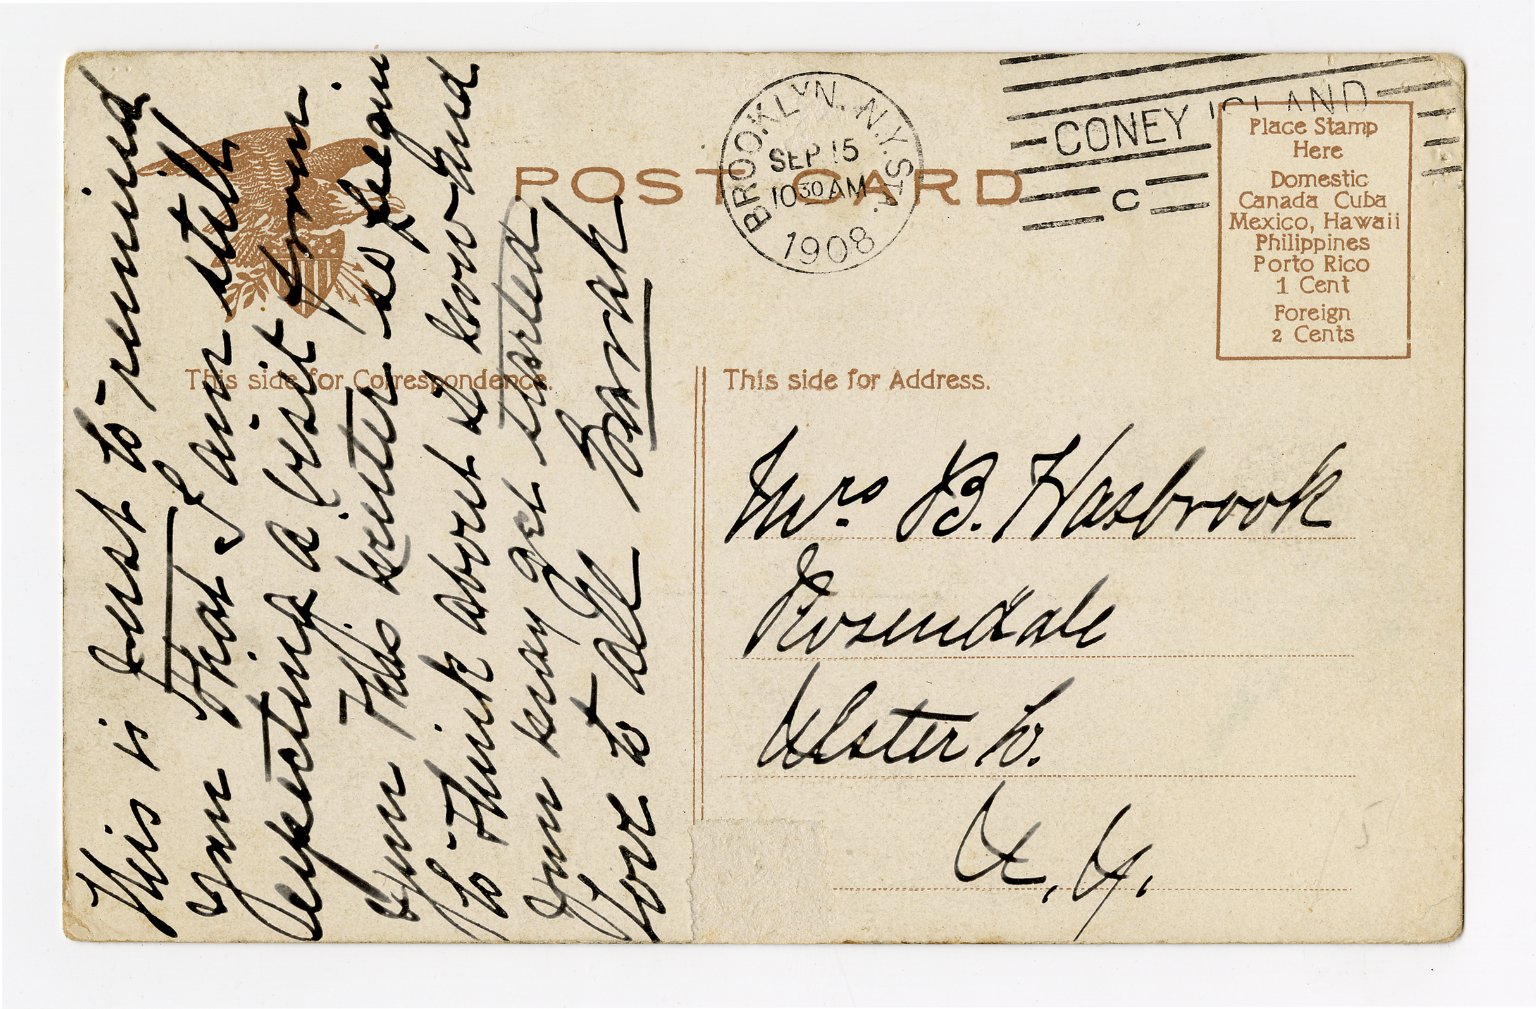 POST CARD
BROOKLYN, N.Y. STA.
SEP 15
10 30 AM
1908
CONEY ISLAND
C
Place Stamp
Here
Domestic
Canada Cuba
Mexico, Hawaii
Philippines
Porto Rico
1 Cent
Foreign
2 Cents
This side for Correspondence.
This side for Address.
This is Just to remind
you that I am still
expecting a visit from
you this winter so begin
to think about it now and
you may get started
Love to all Sarah
Mrs. B. Hasbrook
Rosendale
Ulster Co.
N. Y.